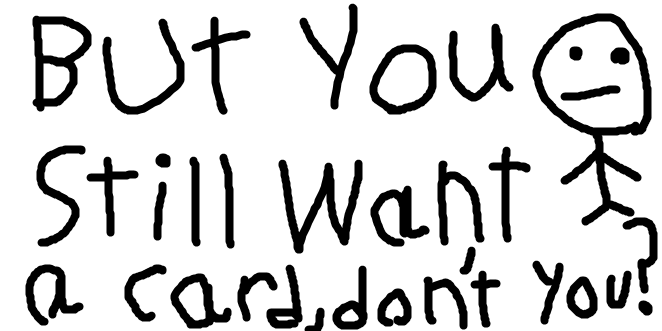 But You
Still Want
a card, don't you?